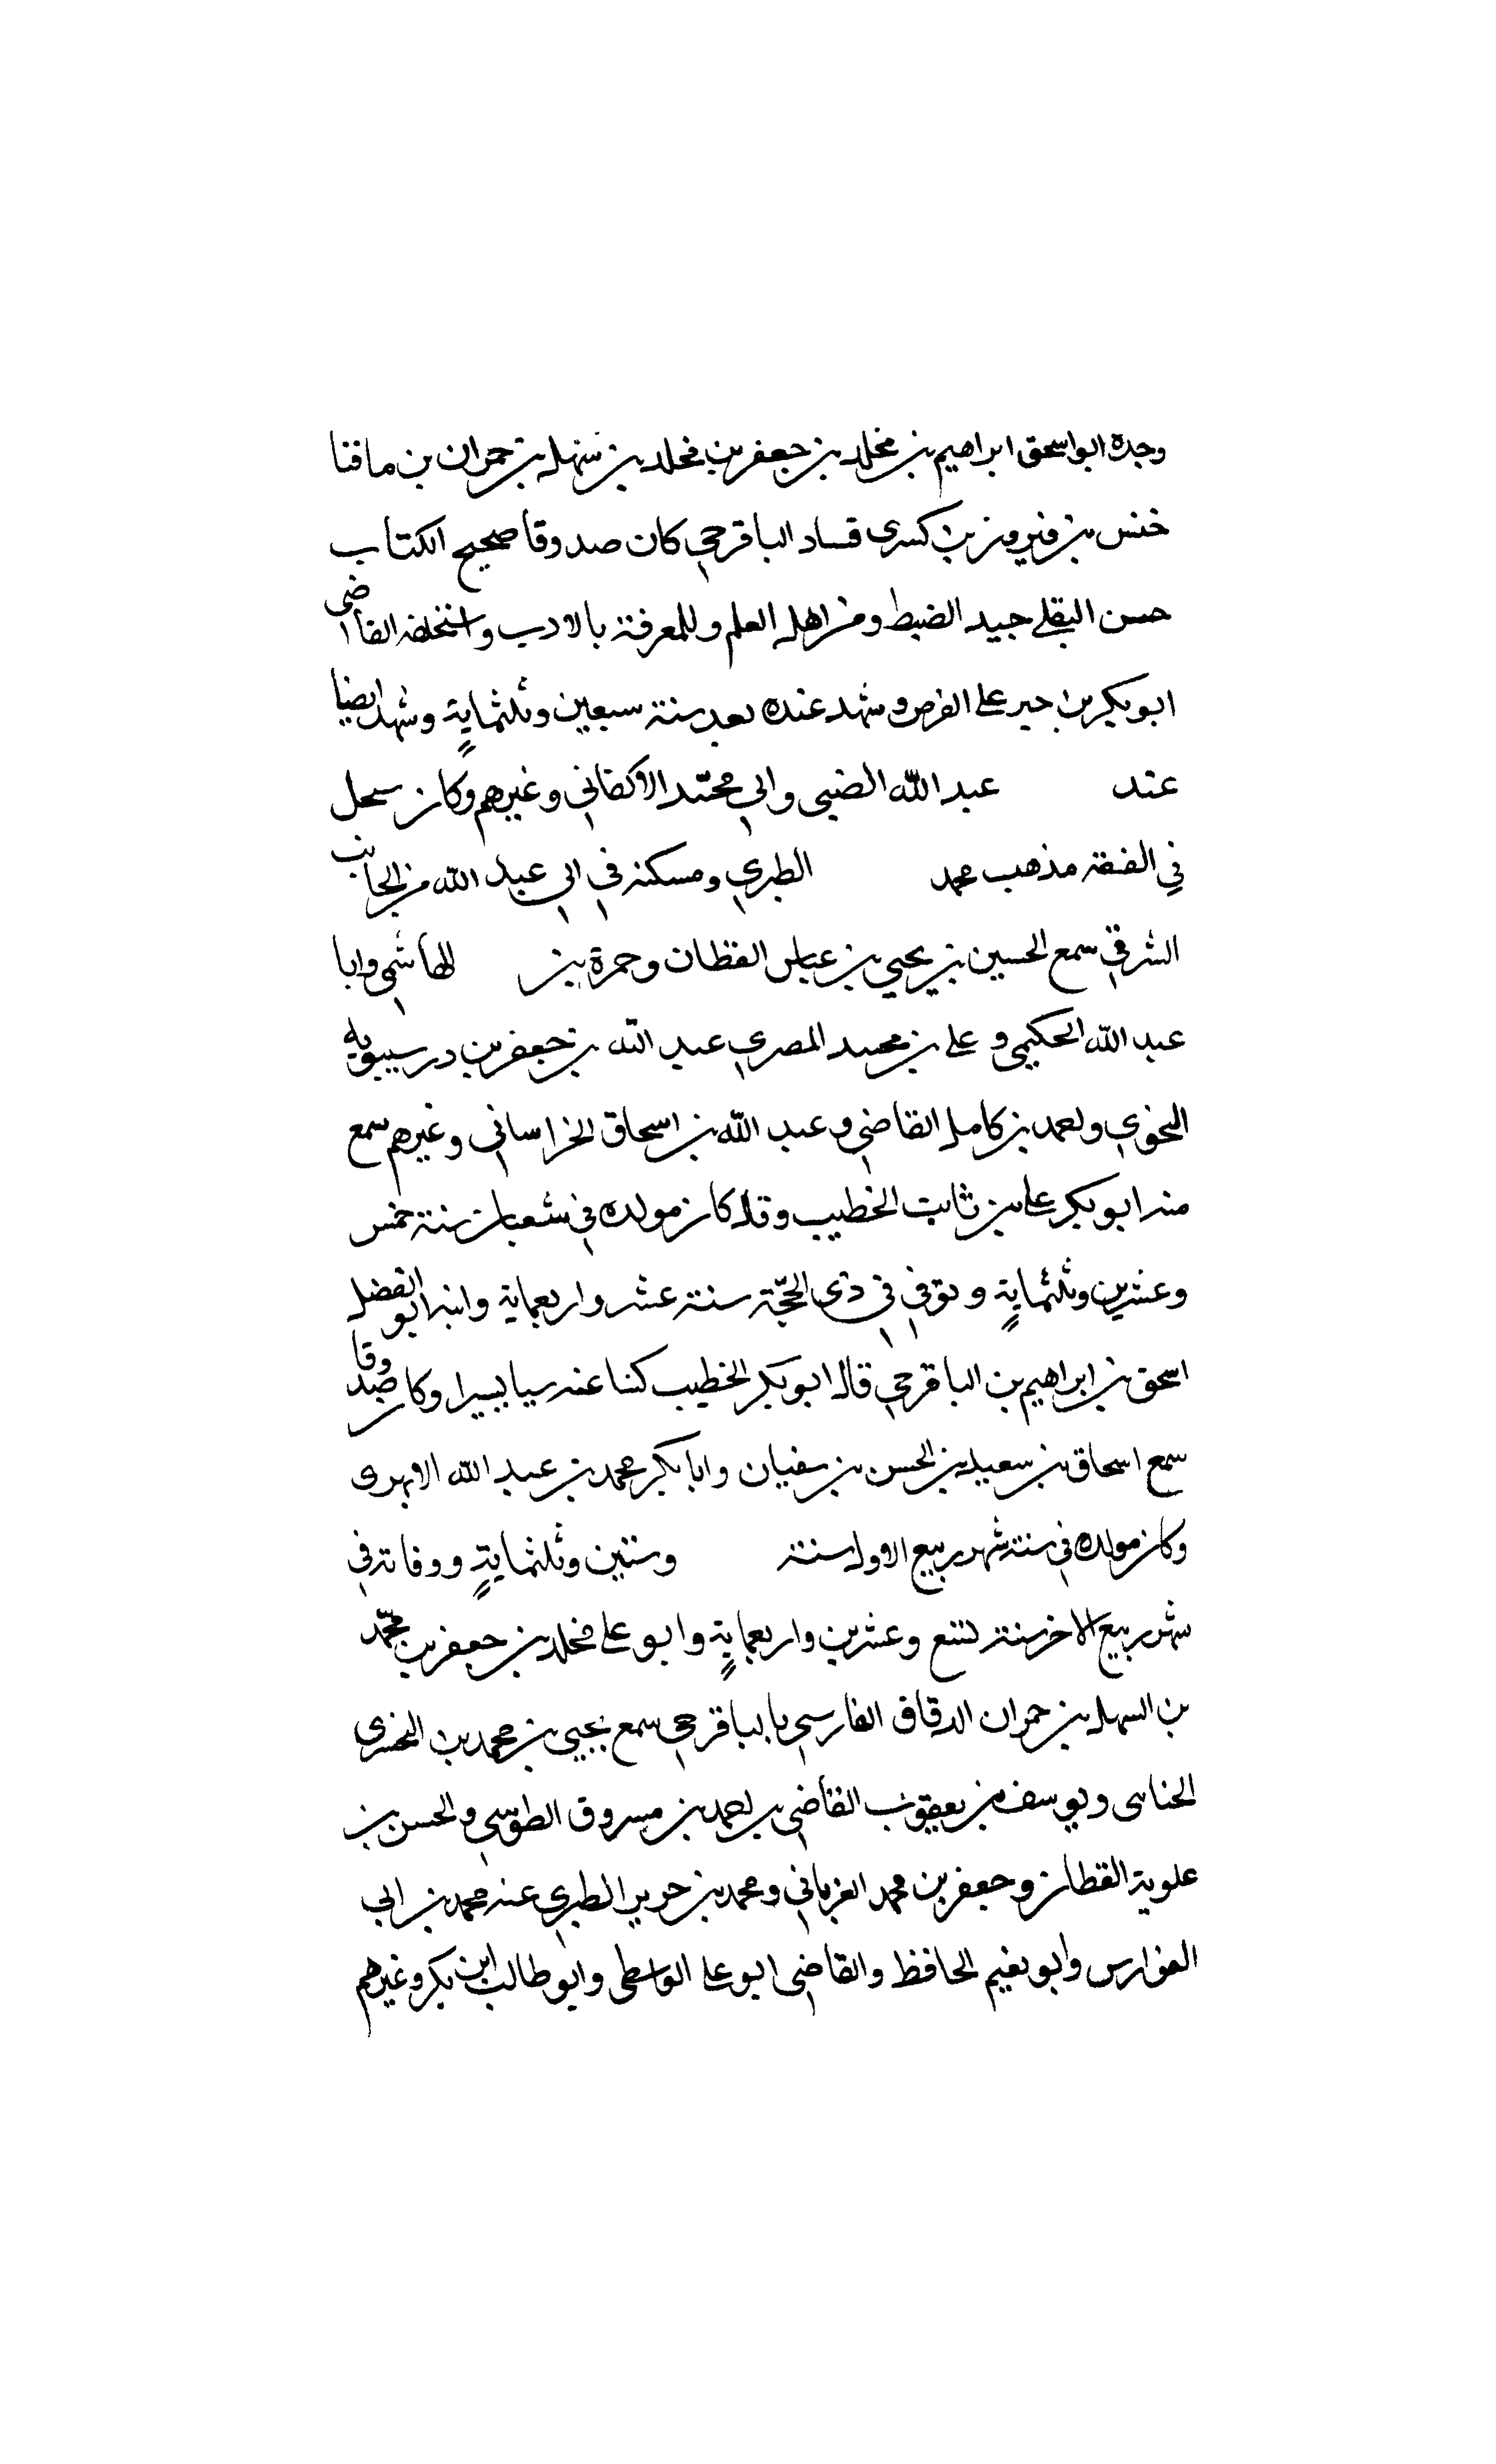 وجده ابو اسحق ابراهيم بن مخلد بن جعفر بن مخلد بن سهل بن حمران بن مافنا
خنس بن فيروز بن كسرى قساد الباقرحي كان صدوقا صحيح الكتاب
حسن النقل جيد الضبط ومن اهل العلم والمعرفة بالادب واستخلفه القاضى
ابو بكر بن حير على الفرض وشهد عنده بعد سنة سبعين وثلثماية وشهد ايضا
عند عبد الله الضبى وابي محمد الاكفاني وغيرهم وكان سحل
في الفقه مذهب محمد الطبري ومسكنه في ابي عبد الله من الجانب
الشرقي سمع الحسين بن يحيي بن عباس القطان وحمزة بن الهاشمي وابا
عبد الله الحكيمي وعلى بن محمد المصري عبد الله بن جعفر بن درسبويه
النحوي واحمد بن كامل القاضي وعبد الله بن اسحاق الخراساني وغيرهم سمع
منه ابو بكر على بن ثابت الخطيب وقال كان مولده في شعبان سنة خمس
وعشرين وثلثماية وتوفي في ذى الحجة سنة عشر واربعماية وابنه ابو الفضل
اسحق بن ابراهيم بن الباقرحي قال ابو بكر الخطيب كتبنا عنه سيا يسيرا وكان صدوقا
سمع اسحاق بن سعيد بن الحسن بن سفيان وابا بكر محمد بن عبد الله الابهرى
وكان مولده في سنة شهر ربيع الاول سنة وستين وثلثماية ووفاته في
شهر ربيع الاخر سنة تسع وعشرين واربعماية وابو على مخلد بن جعفر بن محمد
بن السهل بن حمران الدقاق الفارسي بالباقرحي سمع يحيي بن محمد بن البخترى
الحناى ويوسف بن يعقوب القاضي بن احمد بن مسروق الطوسي والحسن بن
علوية القطان وجعفر بن محمد الفريابي ومحمد بن جرير الطبري عنه محمد بن ابي
الفوارس وابو نعيم الحافظ والقاضي ابو على الواسطى وابو طالب ابن بكر وغيرهم